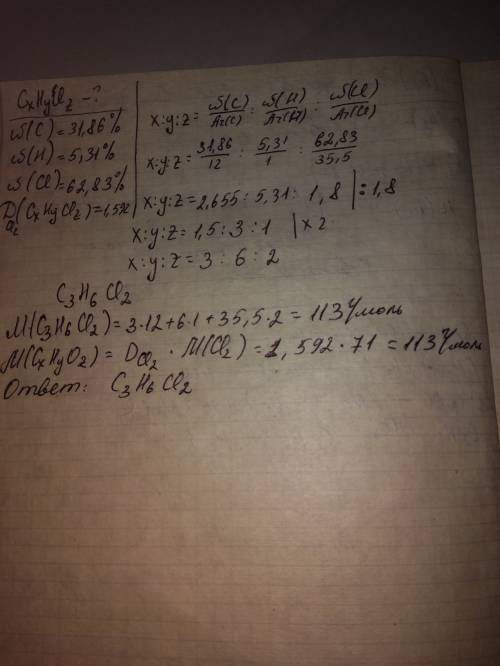 CxHyClz - ?
ω(C) = 31,86%
ω(H) = 5,31%
ω(Cl) = 62,83%
D Cl2 (CxHyClz) = 1,592
x:y:z = ω(C)/Ar(C) : ω(H)/Ar(H) : ω(Cl)/Ar(Cl)
x:y:z = 31,86/12 : 5,31/1 : 62,83/35,5
x:y:z = 2,655 : 5,31 : 1,8 | : 1,8
x:y:z = 1,5 : 3 : 1 | x 2
x:y:z = 3 : 6 : 2
C3H6Cl2
M(C3H6Cl2) = 3·12+6·1+35,5·2 = 113 г/моль
M(CxHyOz) = DCl2 · M(Cl2) = 1,592·71 = 113 г/моль
Ответ: C3H6Cl2